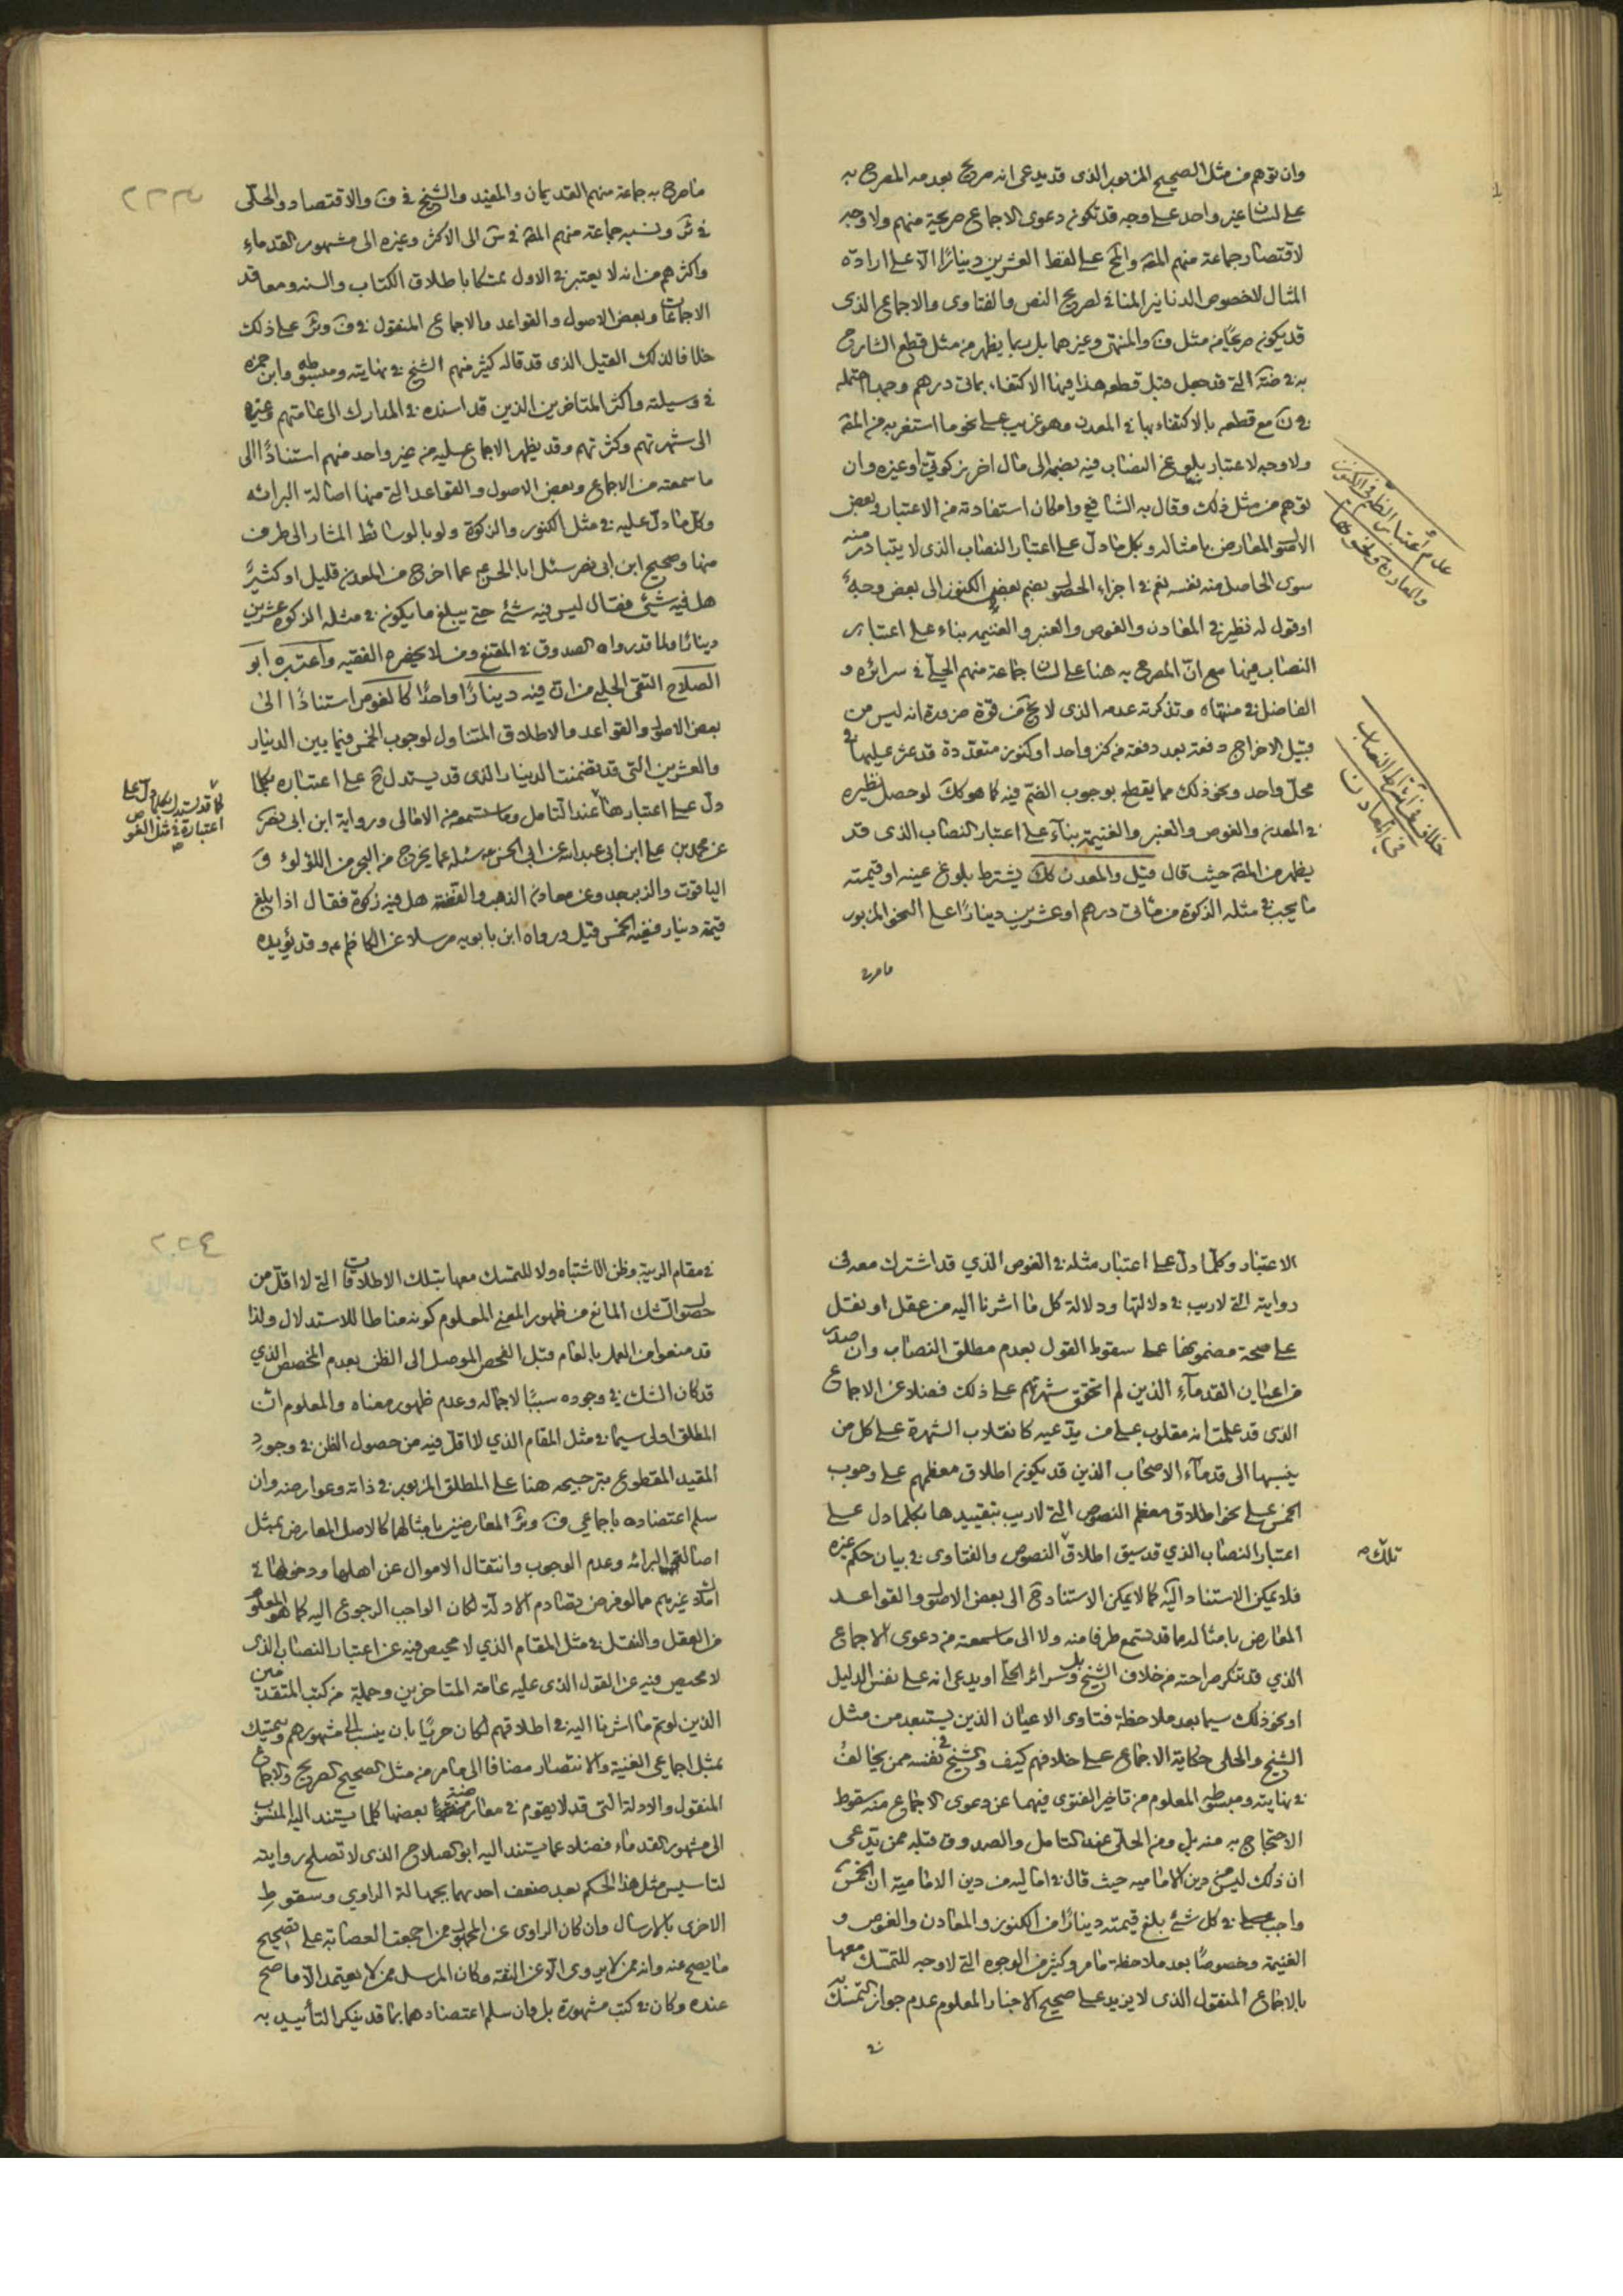 وان توهم من مثل الصحيح المزبور الذى قد يدعى انه صريح بعدمه المصرح به
على لسان غير واحد على وجه قد تكون دعوى الاجماع صريحة منهم ولا وجه
لاقتصار جماعة منهم المقه والمح على لفظ العشرين دينارًا الا على ارادة
المثال لا خصوص الدنانير المنافى لصريح النص والفتاوى والاجماع الذى
قد يكون صريحًا من مثل ف والمنتهى وغيرهما بل ربما يظهر من مثل قطع الشارح
به فى ضته التى قد جعل قبل قطعه هذا فيها الاكتفاء بمأتى درهم وجها احتمله
فى ن مع قطعه بالاكتفاء بها فى المعدن وهو غريب على نحو ما استغربه من المقه
ولا وجه لاعتبار بلوغ النصاب فيه بضمه الى مال اخر زكوتى او غيره وان
توهم من مثل ذلك وقال به الشافعى وامكان استفادته من الاعتبار وبعض
الاصول المعارض بامثاله وبكل ما دل على اعتبار النصاب الذى لا يتبادر منه
سوى الحاصل منه نفسه نعم فى اجزاء الحصول بضم بعض الكنوز الى بعض وجه
او قول له نظير فى المعادن والغوص والعنبر والغنيمه بناء على اعتبار
النصاب فيها مع ان المصرح به هنا على لسان جماعة منهم الحلى فى سرائره و
الفاضل فى منتهاه وتذكرته عدمه الذى لا يخ من قوة ضرورة انه ليس من
قبيل الاخراج دفعة بعد دفعة من كنز واحد او كنوز متعددة قد عثر عليها فى
محل واحد ونحو ذلك مما يقطع بوجوب الضم فيه كما هو كك لو حصل نظيره
فى المعدن والغوص والعنبر والغنيمة بناء على اعتبار النصاب الذى قد
يظهر من المقه حيث قال قيل والمعدن كك يشترط بلوغ عينه او قيمته
ما يجب فى مثله الزكوة من مأتى درهم او عشرين دينارًا على النحو المزبور
ما صرح
عدم اعتبار النظر فى الكنز
والمعادن ونحوها
خلاف فى اشتراط النصاب
فى المعادن
ما صرح به جماعة منهم القديمان والمفيد والشيخ فى ف والاقتصاد والحلى
فى ئر ونسبه جماعة منهم المقه فى س الى الاكثر وغيره الى مشهور القدماء
واكثرهم من انه لا يعتبر فى الاول تمسكا باطلاق الكتاب والسنه ومعاقد
الاجماعات وبعض الاصول والقواعد والاجماع المنقول فى ف وئر على ذلك
خلافا لذلك القيل الذى قد قاله كثير منهم الشيخ فى نهايته ومبسوطه وابن حمزه
فى وسيلته واكثر المتاخرين الذين قد اسنده فى المدارك الى عامتهم وغيره
الى شهرتهم وكثرتهم وقد يظهر الاجماع عليه من غير واحد منهم استنادًا الى
ما سمعته من الاجماع وبعض الاصول والقواعد التى منها اصالة البرائه
وكل ما دل عليه فى مثل الكنوز والزكوة ولو بالوسائط المشار الى طرف
منها وصحيح ابن ابى نصر سئل ابا الحسن ع عما اخرج من المعدن قليل او كثير
هل فيه شئى فقال ليس فيه شئ حتى يبلغ ما يكون فى مثله الزكوة عشرين
دينارًا ولما قد رواه الصدوق فى المقنع ومن لا يحضره الفقيه واعتبره ابو
الصلاح التقى الحلبى من ان فيه دينارًا واحدًا كالغوص استنادًا الى
بعض الاصول والقواعد والاطلاق المتناول لوجوب الخمس فيما بين الدينار
والعشرين التى قد تضمنت الدينار الذى قد يستدل ح على اعتباره بكلما
دل على اعتبارها عند التامل وما ستسمعه من الامالى ورواية ابن ابى نصر
عن محمد بن على ابن ابى عبدالله عن ابى الحسن ع سئله عما يخرج من البحر من اللؤلؤ و
الياقوت والزبرجد وعن معادن الذهب والفضة هل فيه زكوة فقال اذا بلغ
قيمة دينار ففيه الخمس قيل ورواه ابن بابويه مرسلا عن الكاظم ع وقد يؤيده
كما قد يستدل بكلما دل على
اعتباره فى مثل الغوص
٢٢٣
الاعتبار وكلما دل على اعتبار مثله فى الغوص الذي قد اشترك معه فى
روايته التى لا ريب فى دلالتها ودلالة كل ما اشرنا اليه من عقل او نقل
على صحة مضمونها على سقوط القول بعدم مطلق النصاب وان صدر
من اعيان القدمآء الذين لم اتحقق شهرتهم على ذلك فضلا عن الاجماع
الذى قد علمت انه مقلوب على من يدعيه كانقلاب الشهرة على كل من
ينسبها الى قدمآء الاصحاب الذين قد يكون اطلاق معظمهم على وجوب
الخمس على نحو اطلاق معظم النصوص التى لا ريب بتقييدها بكلما دل على
اعتبار النصاب الذي قد سيق اطلاق النصوص والفتاوى فى بيان حكم غيره
فلا يمكن الاستناد اليه كما لا يمكن الاستناد ح الى بعض الاصول والقواعد
المعارض بامثاله مما قد تسمع طرفا منه ولا الى ما سمعته من دعوى الاجماع
الذي قد تنكر صراحته من خلاف الشيخ بل وسرائر الحلى او يدعى انه على نفس الدليل
او نحو ذلك سيما بعد ملاحظة فتاوى الاعيان الذين يستبعد من مثل
الشيخ والحلى حكاية الاجماع على خلافهم كيف والشيخ فى نفسه ممن يخالفه
فى نهايته ومبسوطه المعلوم من تاخير الفتوى فيهما عن دعوى الاجماع منه سقوط
الاحتجاج به منه بل ومن الحلى عند التامل والصدوق قبله ممن يدعى
ان ذلك ليس من دين الاماميه حيث قال فى اماليه من دين الامامية ان الخمس
واجب فى كل شئ بلغ قيمته دينارًا من الكنوز والمعادن والغوص و
الغنيمة وخصوصًا بعد ملاحظة ما مر وكثير من الوجوه التى لا وجه للتمسك معها
بالاجماع المنقول الذى لا يزيد على صحيح الاخبار المعلوم عدم جواز التمسك به
فى
تلك
فى مقام الريبة وظن الاشتباه ولا للتمسك معها بتلك الاطلاقات التى لا اقل من
حصول الشك المانع من ظهور المعنى المعلوم كونه مناطا للاستدلال ولذا
قد منعوا من العمل بالعام قبل الفحص الموصل الى الظن بعدم المخصص الذي
قد كان الشك فى وجوده سببًا لاجماله وعدم ظهور معناه والمعلوم ان
المطلق اولى سيما فى مثل المقام الذي لا اقل فيه من حصول الظن فى وجود
المقيد المقطوع بترجيحه هنا على المطلق المزبور فى ذاته وعوارضه وان
سلم اعتضاده باجماعى ف وئر المعارضين بامثالهما كالاصل المعارض بمثل
اصالتى البرائه وعدم الوجوب وانتقال الاموال عن اهلها ودخولها فى
املاك غيرهم مما لو فرض تصادم الادلة لكان الواجب الرجوع اليه كما هو المعلوم
من العقل والنقل فى مثل المقام الذي لا محيص فيه عن اعتبار النصاب الذى
لا محيص فيه عن القول الذى عليه عامة المتاخرين وجملة من كتب المتقدمين
الذين لو تم ما اشرنا اليه فى اطلاقهم لكان حريًا بان ينسب الى مشهورهم ويتمسك
بمثل اجماعى الغنية والانتصار مضافا الى ما مر من مثل الصحيح الصريح والاجماع
المنقول والادلة التى قد لا يقوم فى معارضته بعضها كلما يستند اليه المنسوب
الى مشهور القدماء فضلا عما يستند اليه ابو الصلاح الذى لا تصلح روايته
لتاسيس مثل هذا الحكم بعد ضعف احدهما بجهالة الراوي وسقوط
الاخرى بالارسال وان كان الراوى عن المجهول ممن اجمعت العصابة على تصحيح
ما يصح عنه وانه ممن لا يروى الا عن الثقه وكان المرسل ممن لا يعتمد الا ما صح
عنده وكان فى كتب مشهورة بل وان سلم اعتضادهما بما قد ينكر التأييد به
٢٢٤